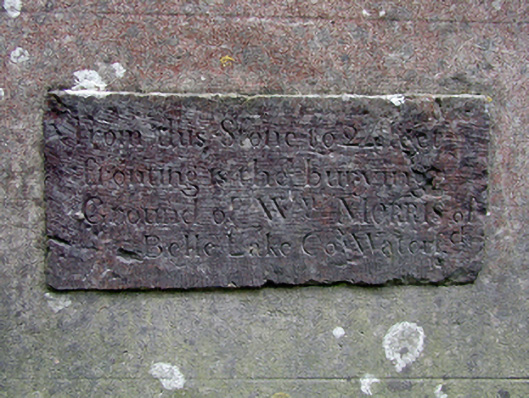 From this Stone to 24 feet
fronting is the burying
Ground of Wm MORRIS of
Belle Lake Coy Waterfd